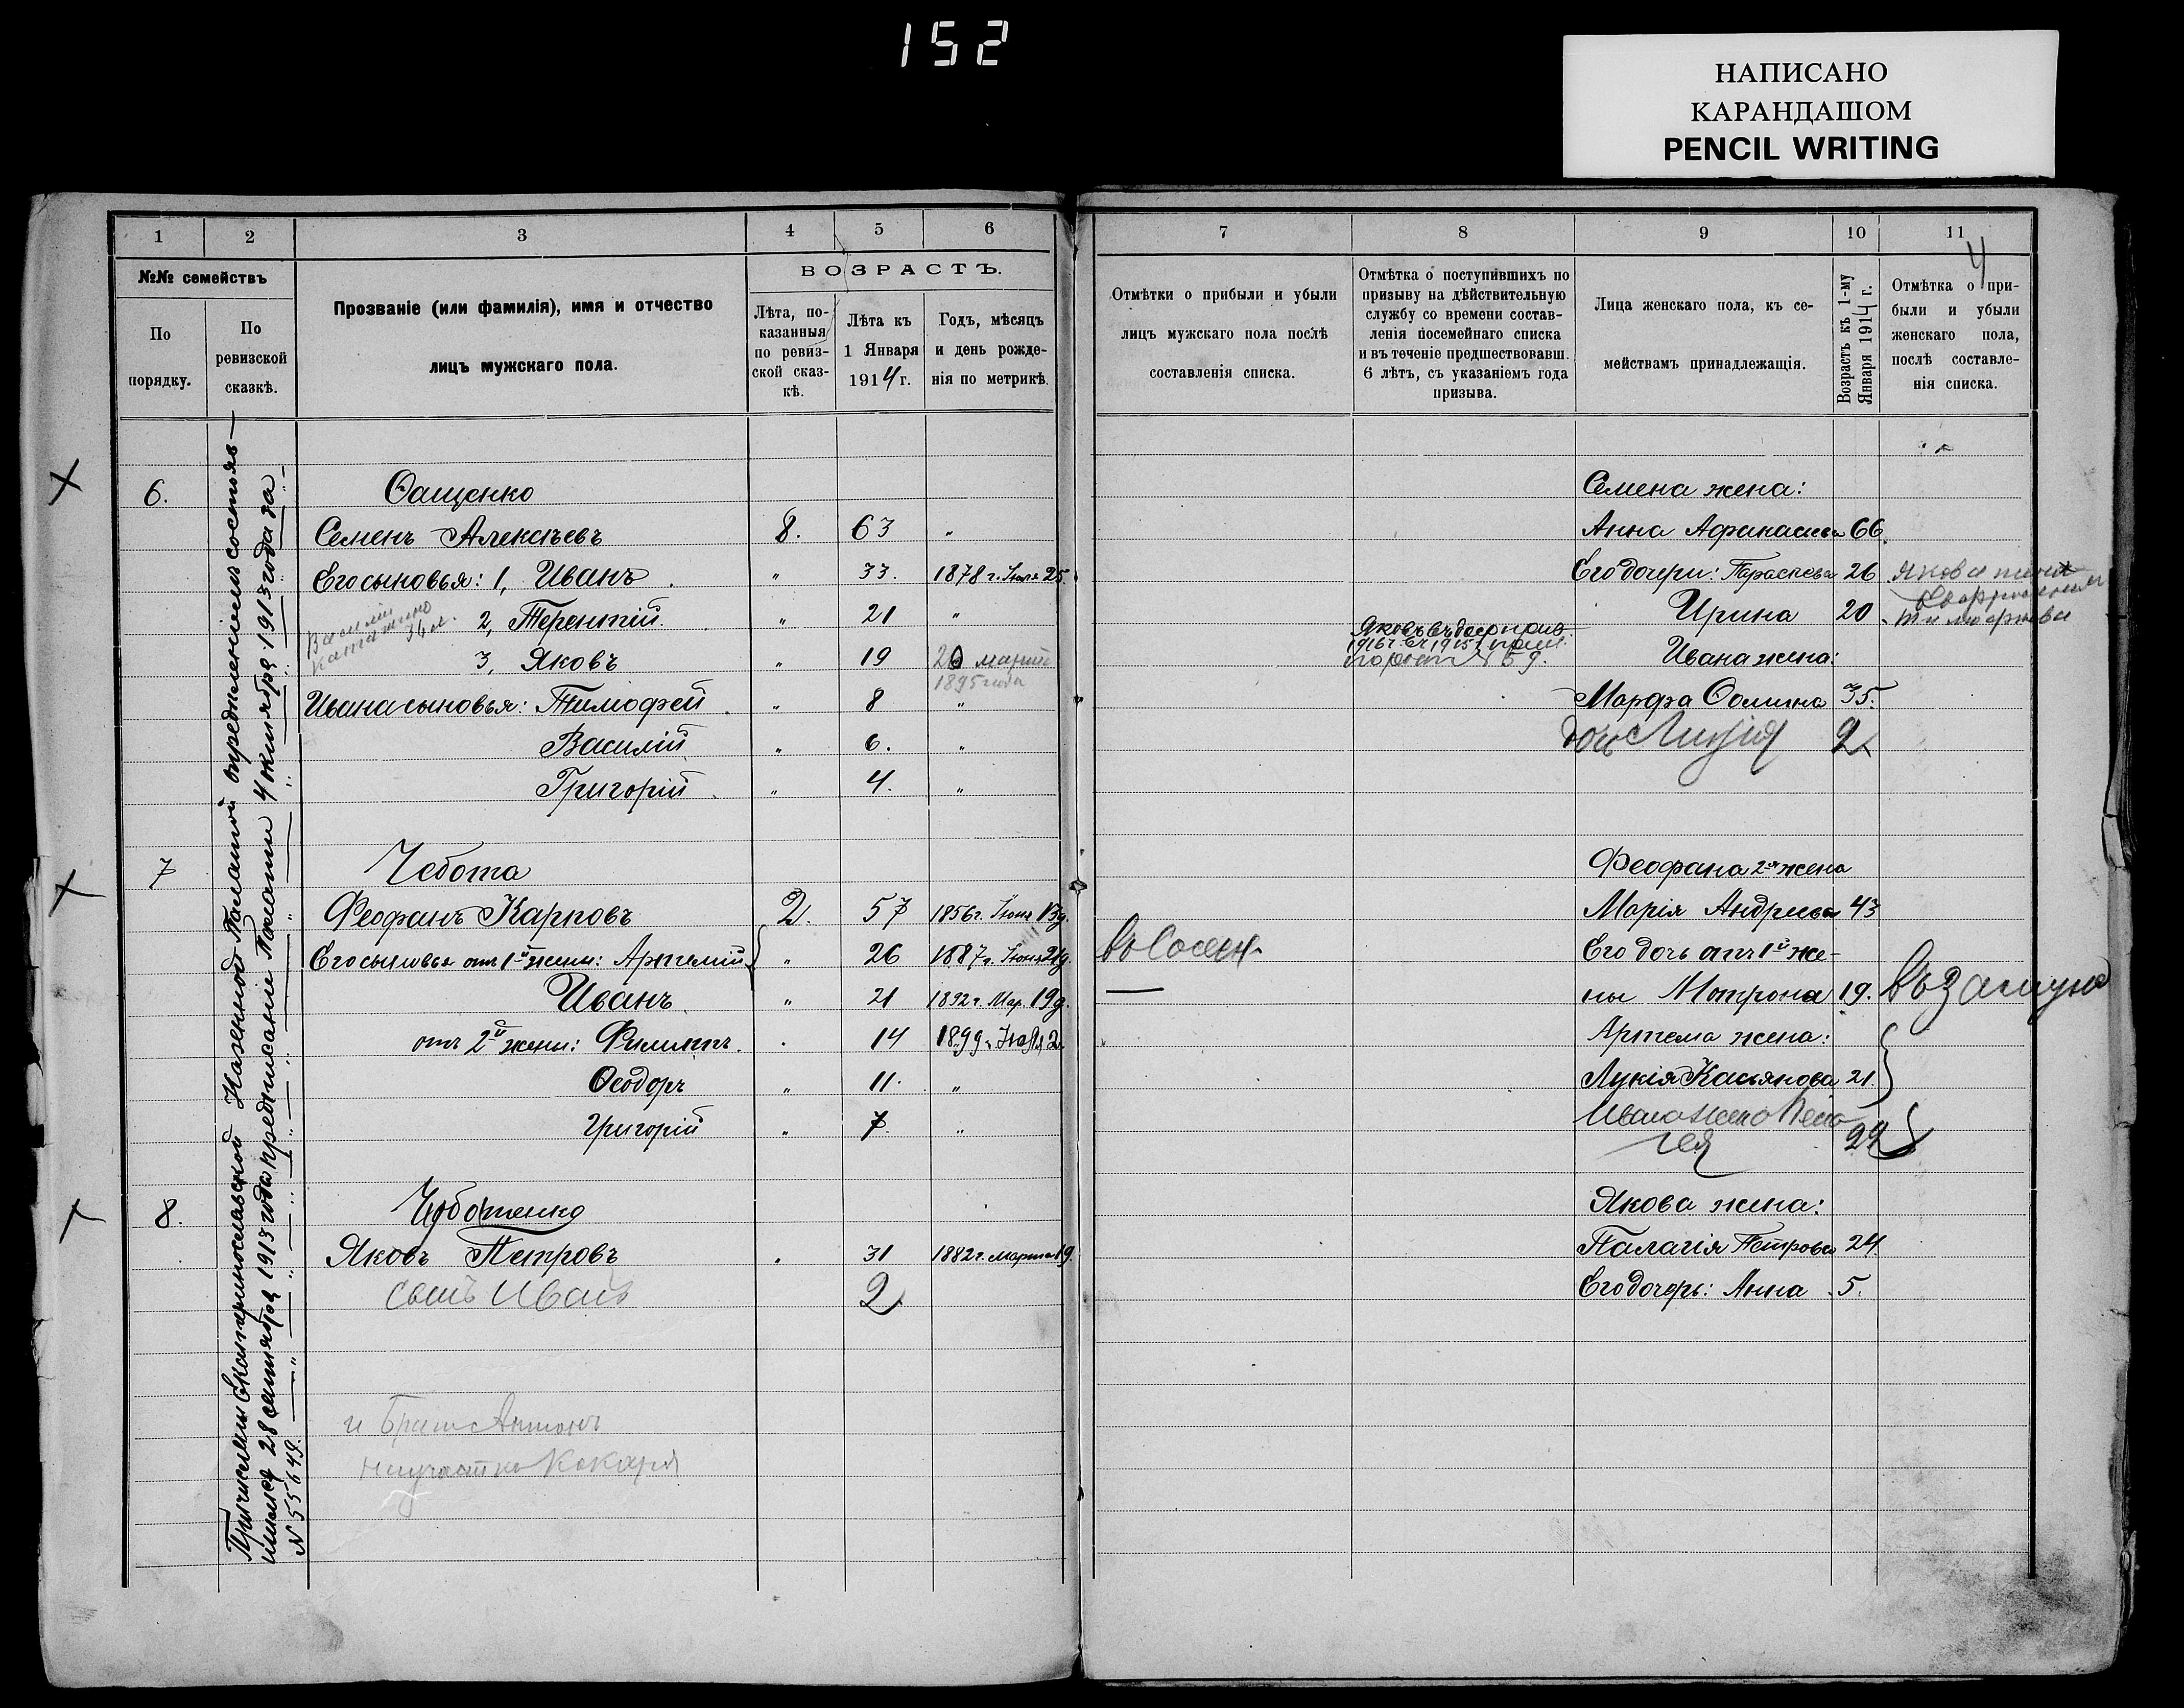 152
НАПИСАНО
КАРАНДАШОМ
PENCIL WRITING
1 2 3 4 5 6
№№ семействъ
По порядку.
По ревизской сказкѣ.
Прозваніе (или фамилія), имя и отчество
лицъ мужскаго пола.
ВОЗРАСТЪ.
Лѣта, по-
казанныя
по ревиз-
ской сказ-
кѣ.
Лѣта къ
1 Января
1914 г.
Годъ, мѣсяцъ
и день рожде-
нія по метрикѣ.
Причислены Екатеринославской Казенной Палатой опредѣленіемъ состояв-
шимся 28 сентября 1913 года предписаніе Палаты 4 октября 1913 года за
№ 55649.
6. Ѳащенко
Семенъ Алексѣевъ 8. 63 "
Его сыновья: 1, Иванъ " 33. 1878 г. Іюля 25.
2, Терентій. " 21 "
Василій
36 л.
3, Яковъ " 19 20 марта
1895 года
Ивана сыновья: Тимофей " 8 "
Василій " 6. "
Григорій " 4. "
7 Чебота
Феофанъ Карповъ 2. 57 1856 г. Іюня 13 д.
Его сыновья отъ 1й жены: Артемій " 26 1887 г. Іюня 21 д.
Иванъ " 21 1892 г. Мар. 19 д.
отъ 2й жены: Филиппъ. 14 1899 г. Іюля 2
Ѳеодоръ " 11. "
Григорій " 7. "
8. Чоботенко
Яковъ Петровъ 31 1882 г. Марта 19.
сынъ Иванъ 2
и Братъ Антонъ
7 8 9 10 11
4
Отмѣтки о прибыли и убыли
лицъ мужскаго пола послѣ
составленія списка.
Отмѣтка о поступившихъ по
призыву на дѣйствительную
службу со времени состав-
ленія посемейнаго списка
и въ теченіе предшествовавш.
6 лѣтъ, съ указаніемъ года
призыва.
Лица женскаго пола, къ се-
мействамъ принадлежащія.
Возрастъ къ 1-му
Января 1914 г.
Отмѣтка о при-
были и убыли
женскаго пола,
послѣ составле-
нія списка.
Семена жена:
Анна Афанасьева 66.
Его дочери: Параскева 26 Якова жена
Ирина 20
Яковъ
№ 59.
Ивана жена:
Марфа Ѳомина 35.
дочь Лидія 2
Феофана 2я жена
Марія Андреева 43
Его дочь отъ 1й же-
ны Мотрона 19. въ замуж
Артема жена:
Лукія Касьянова 21.
Ивана жена Пела-
гея 22
Якова жена:
Палагія Петрова 24.
Его дочерь: Анна 5.